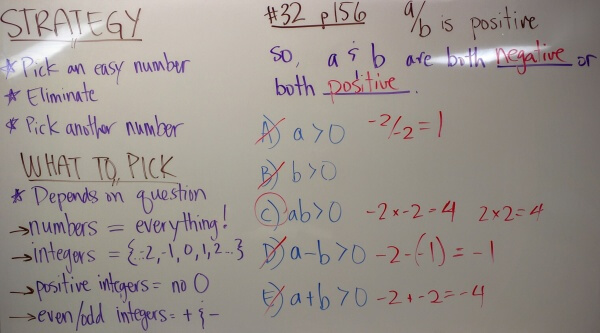 STRATEGY
* Pick an easy number
* Eliminate
* Pick another number
WHAT TO PICK
* Depends on question
→ numbers = everything!
→ integers = {..-2, -1, 0, 1, 2...}
→ positive integers = no 0
→ even/odd integers = + & -
#32 p156
a/b is positive
so, a & b are both negative or
both positive.
A) a>0 -2/-2 = 1
B) b>0
C) ab>0 -2 x -2 = 4 2 x 2 = 4
D) a-b>0 -2-(-1) = -1
E) a+b>0 -2+-2=-4